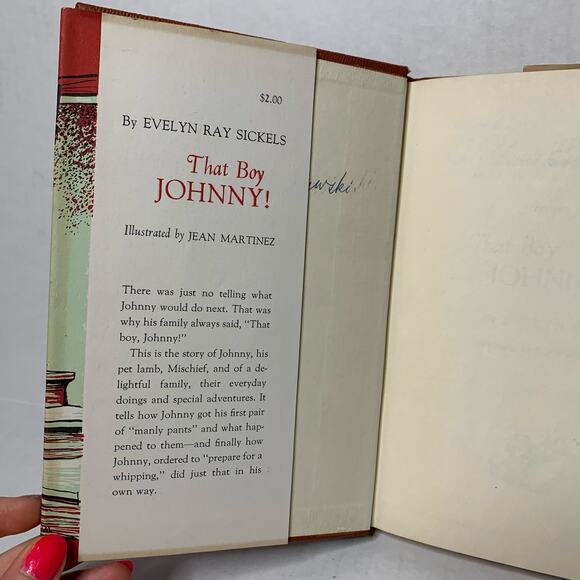 $2.00
By EVELYN RAY SICKELS
That Boy
JOHNNY!
Illustrated by JEAN MARTINEZ
There was just no telling what
Johnny would do next. That was
why his family always said, “That
boy, Johnny!”
This is the story of Johnny, his
pet lamb, Mischief, and of a de-
lightful family, their everyday
doings and special adventures. It
tells how Johnny got his first pair
of “manly pants” and what hap-
pened to them—and finally how
Johnny, ordered to “prepare for a
whipping,” did just that in his
own way.
That Boy